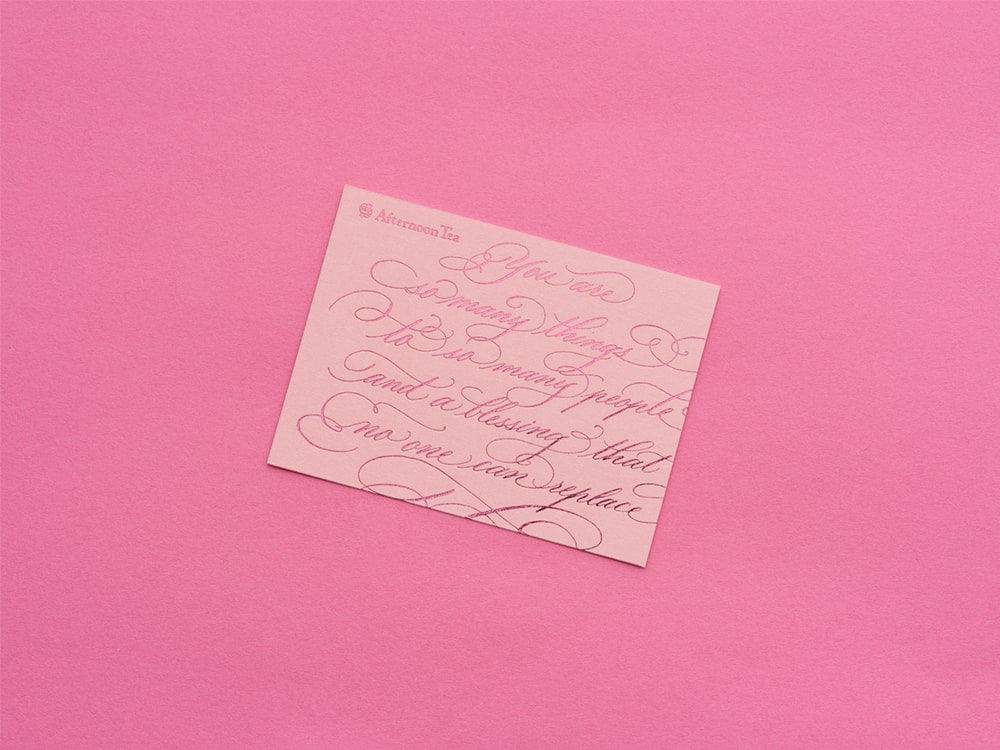 Afternoon Tea
You are
so many things
to so many people
and a blessing that
no one can replace